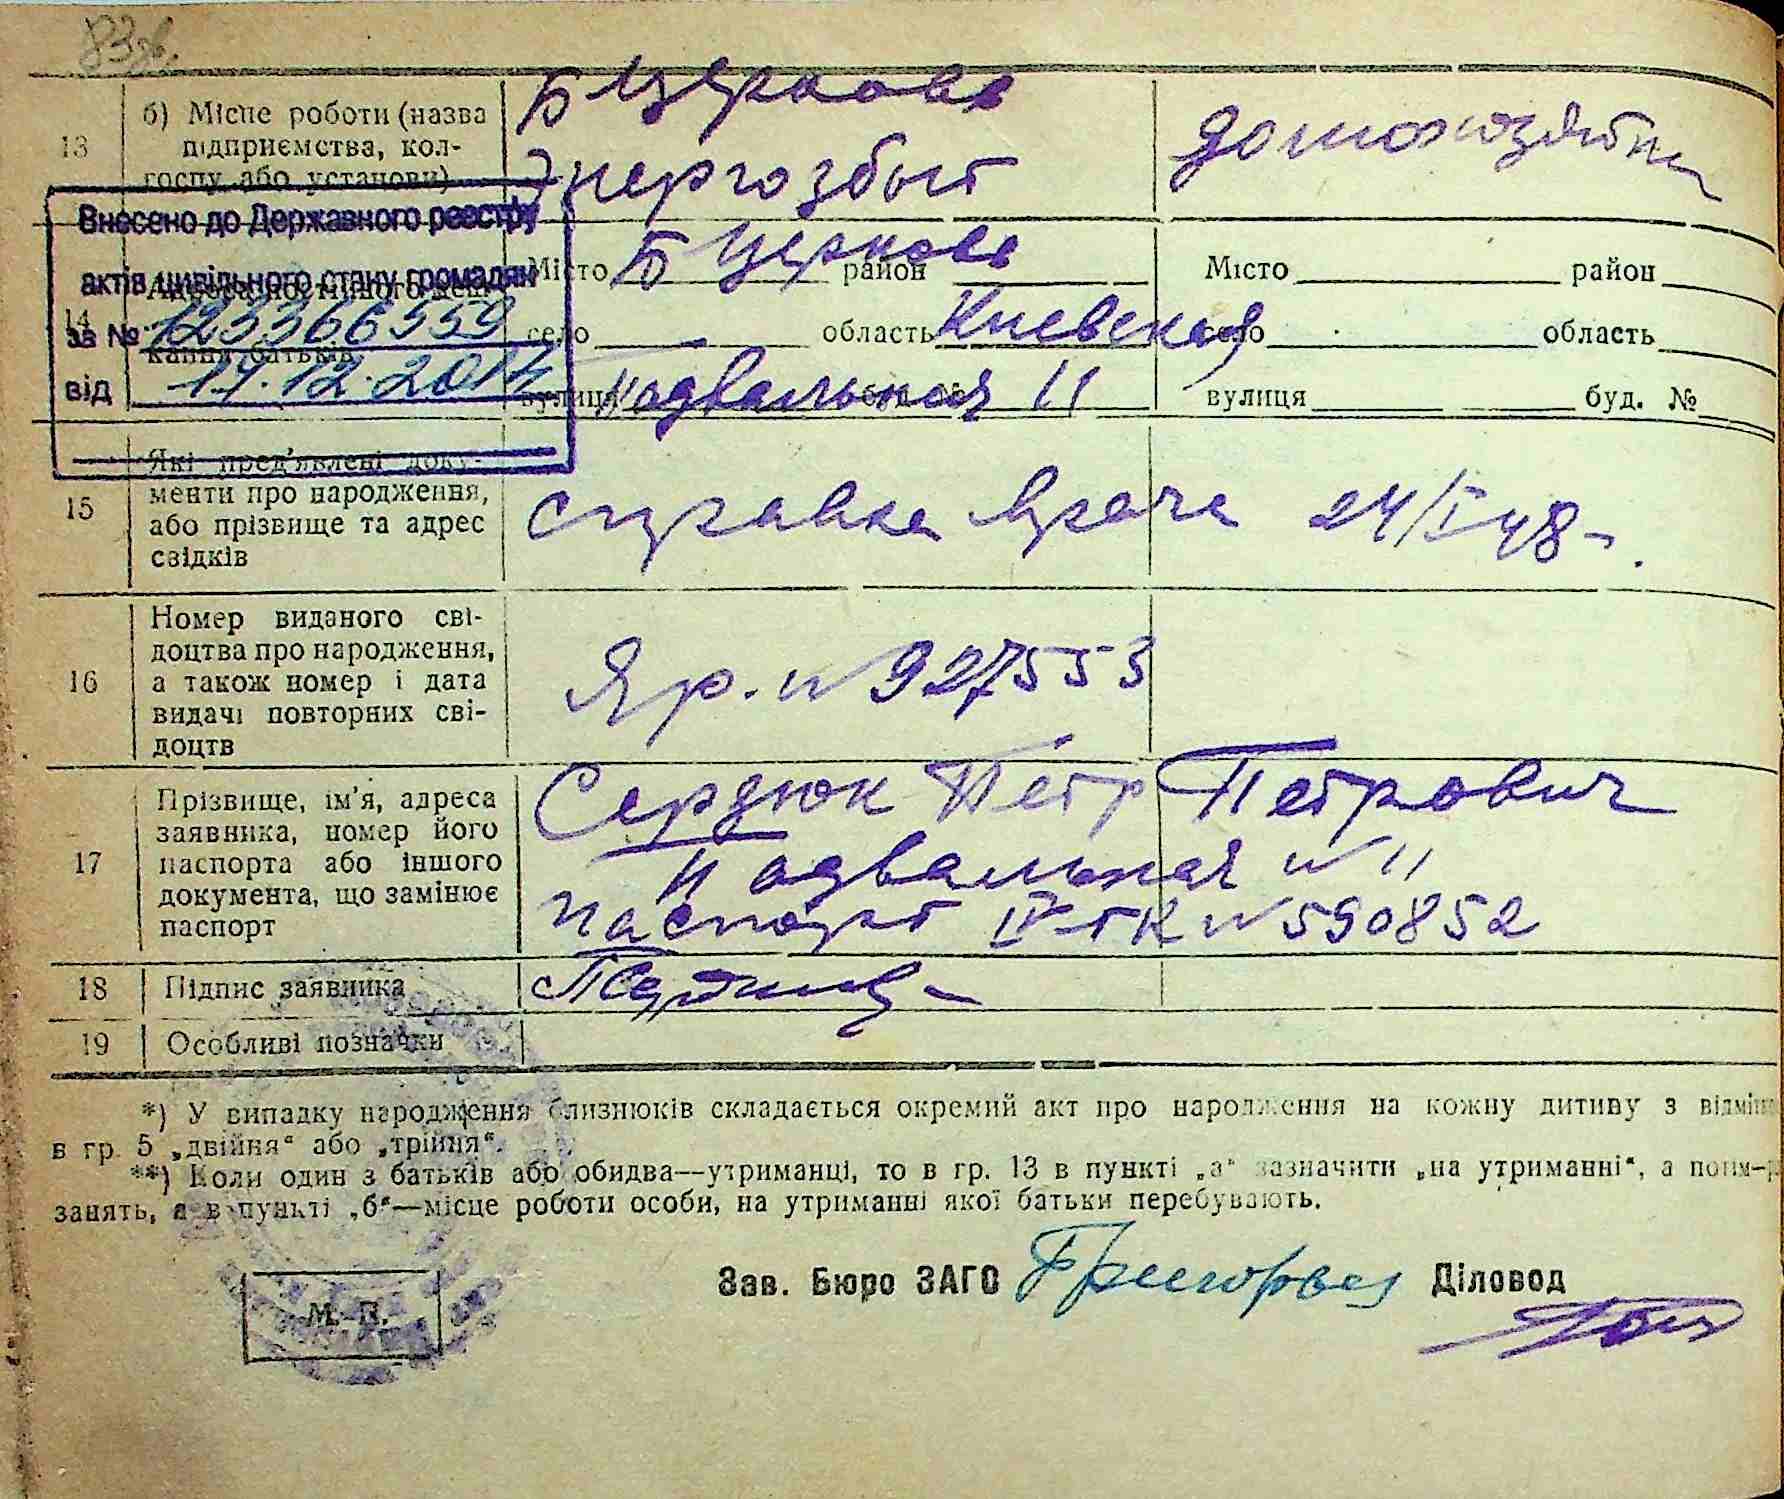 83 зв.
13
б) Місце роботи (назва
підприємства, кол-
госпу або установи)
Б Церковь
Энергозбыт
домохозяйка
Внесено до Державного реєстру
актів цивільного стану громадян
за № 123366559
від 17.12.2014
14
кання батьків
Місто Б Церковь район
село область Киевская
вулиця Надвальная 11
Місто район
село область
вулиця буд. №
15
Які пред'явлені доку-
менти про народження,
або прізвище та адрес
свідків
справка врача 24/I 48 г.
16
Номер виданого сві-
доцтва про народження,
а також номер і дата
видачі повторних сві-
доцтв
Яр. № 927553
17
Прізвище, ім'я, адреса
заявника, номер його
паспорта або іншого
документа, що замінює
паспорт
Сердюк Пётр Петрович
Надвальная № 11
Паспорт IV-ТК № 590852
18
Підпис заявника
19
Особливі позначки
*) У випадку народження близнюків складається окремий акт про народження на кожну дитину з
в гр. 5 „двійня“ або „трійня“.
**) Коли один з батьків або обидва—утриманці, то в гр. 13 в пункті „а“ зазначити „на утриманні“, а
занять, а в пункті „б“—місце роботи особи, на утриманні якої батьки перебувають.
Зав. Бюро ЗАГС Григорьев Діловод
М. П.